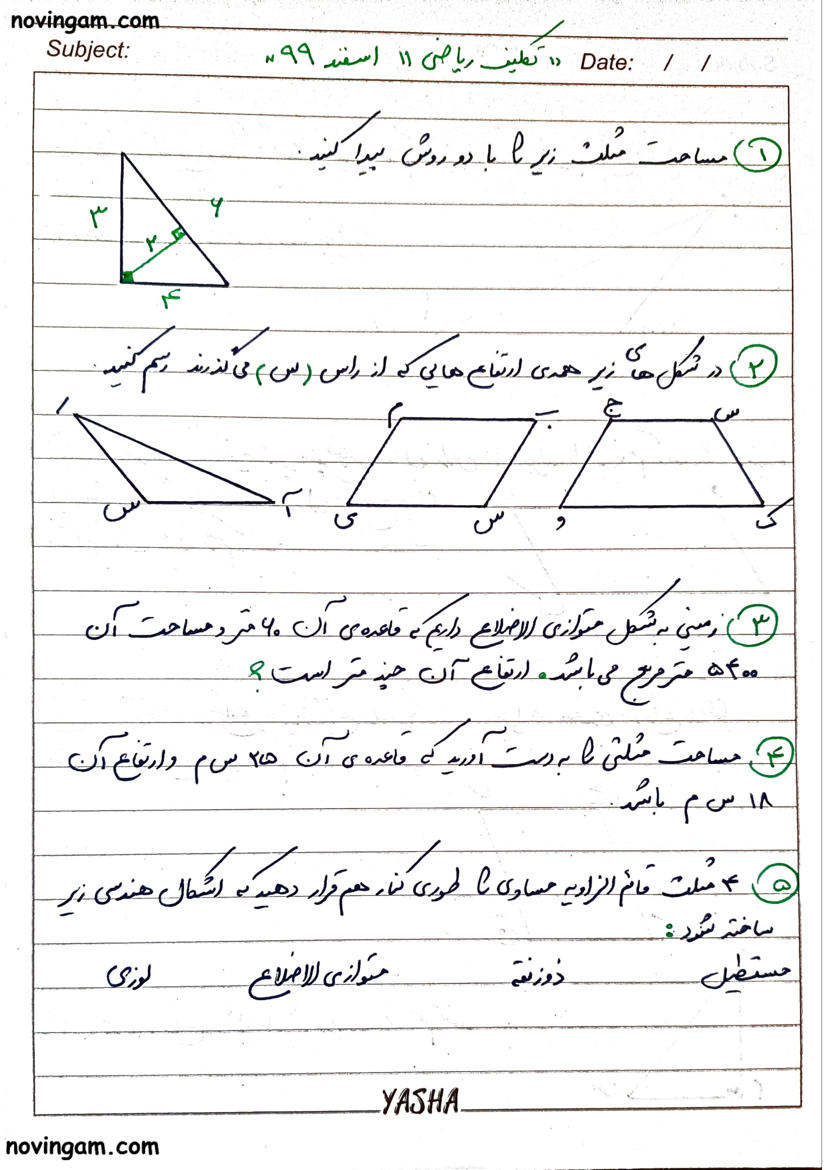 novingam.com
Subject:
" تکلیف ریاضی ۱۱ اسفند ۹۹ "
Date: / /
۱ مساحت مثلث زیر را با دو روش پیدا کنید.
۳
۶
۲
۴
۲ در شکل های زیر همه‌ی ارتفاع هایی که از راس (س) می‌گذرند رسم کنید.
ا
م
ب
ج
س
س
آ
ی
س
و
ک
۳ زمینی به شکل متوازی الاضلاع داریم که قاعده‌ی آن ۶۰ متر و مساحت آن
۵۴۰۰ متر مربع می باشد. ارتفاع آن چند متر است؟
۴ مساحت مثلثی را به دست آورید که قاعده‌ی آن ۲۵ س م و ارتفاع آن
۱۸ س م باشد.
۵ ۴ مثلث قائم الزاویه مساوی را طوری کنار هم قرار دهید که اشکال هندسی زیر
ساخته شود:
مستطیل ذوزنقه متوازی الاضلاع لوزی
YASHA
novingam.com